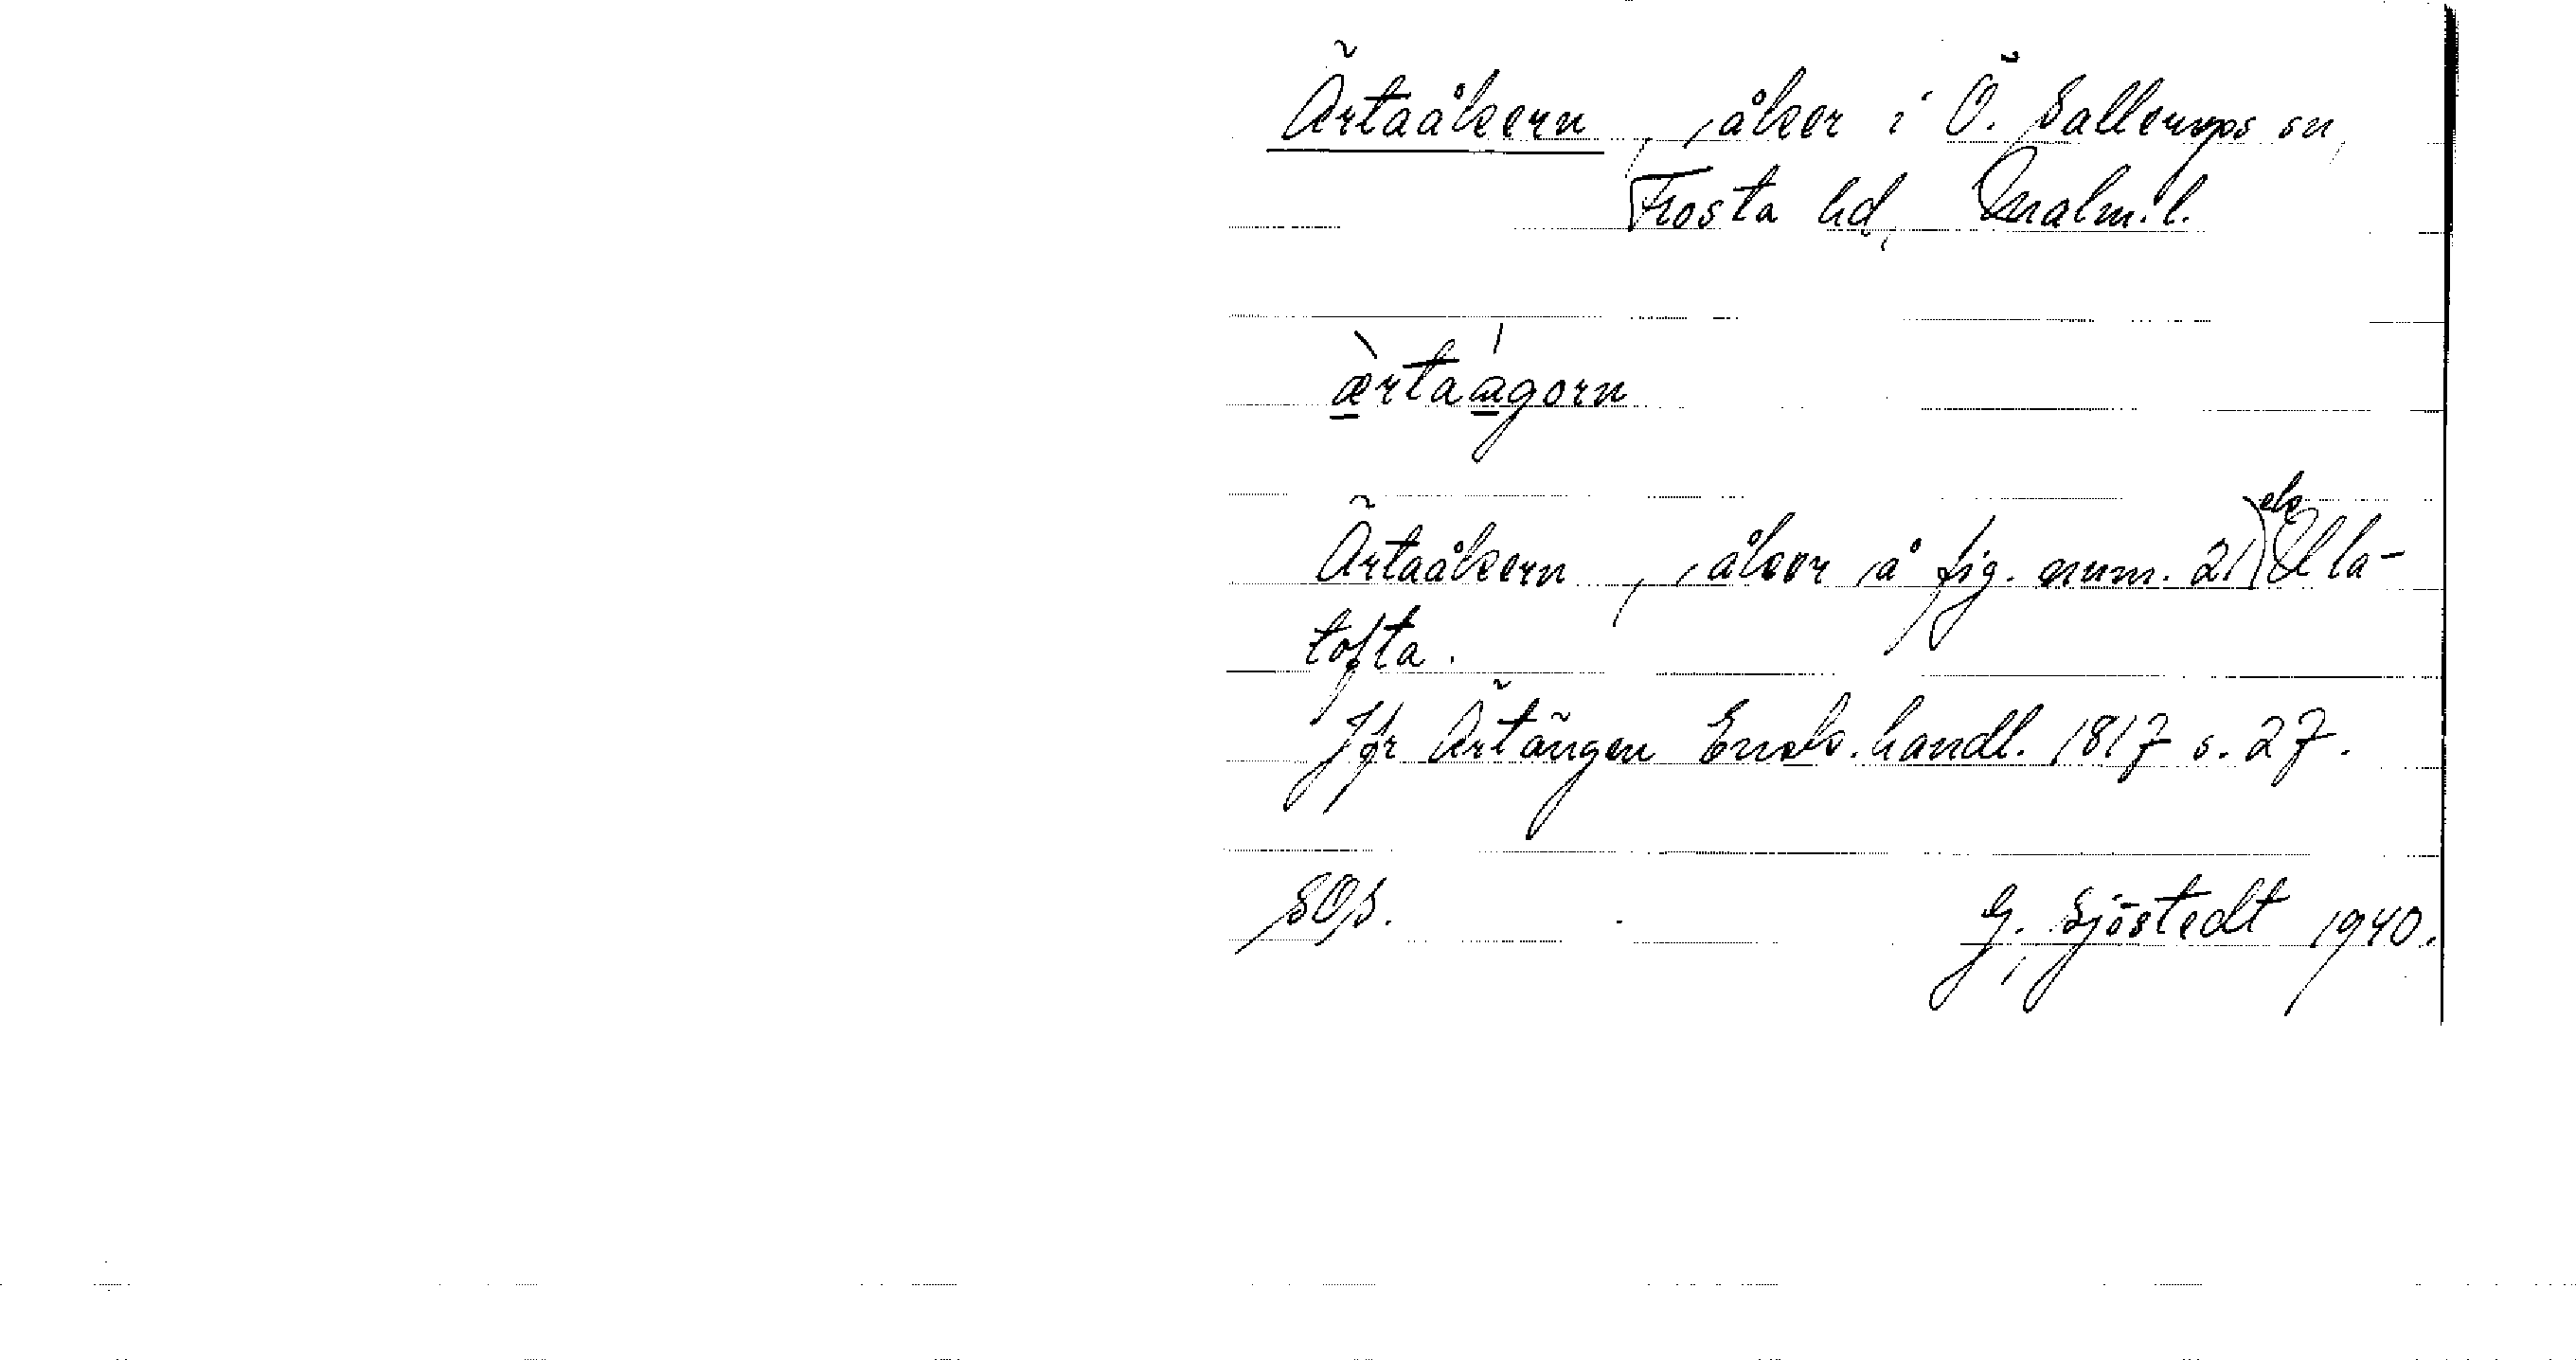 Ärtaåkern, åker i Ö. Sallerups sn,
Frosta hd, Malm. l.
æ̀rtaágorn
Ärtaåkern, åker å fig. num. 21) ek Ulla-
tofta.
Jfr Ärtängen Ensk. handl. 1817 s. 27.
SOS. G. Sjöstedt 1940.